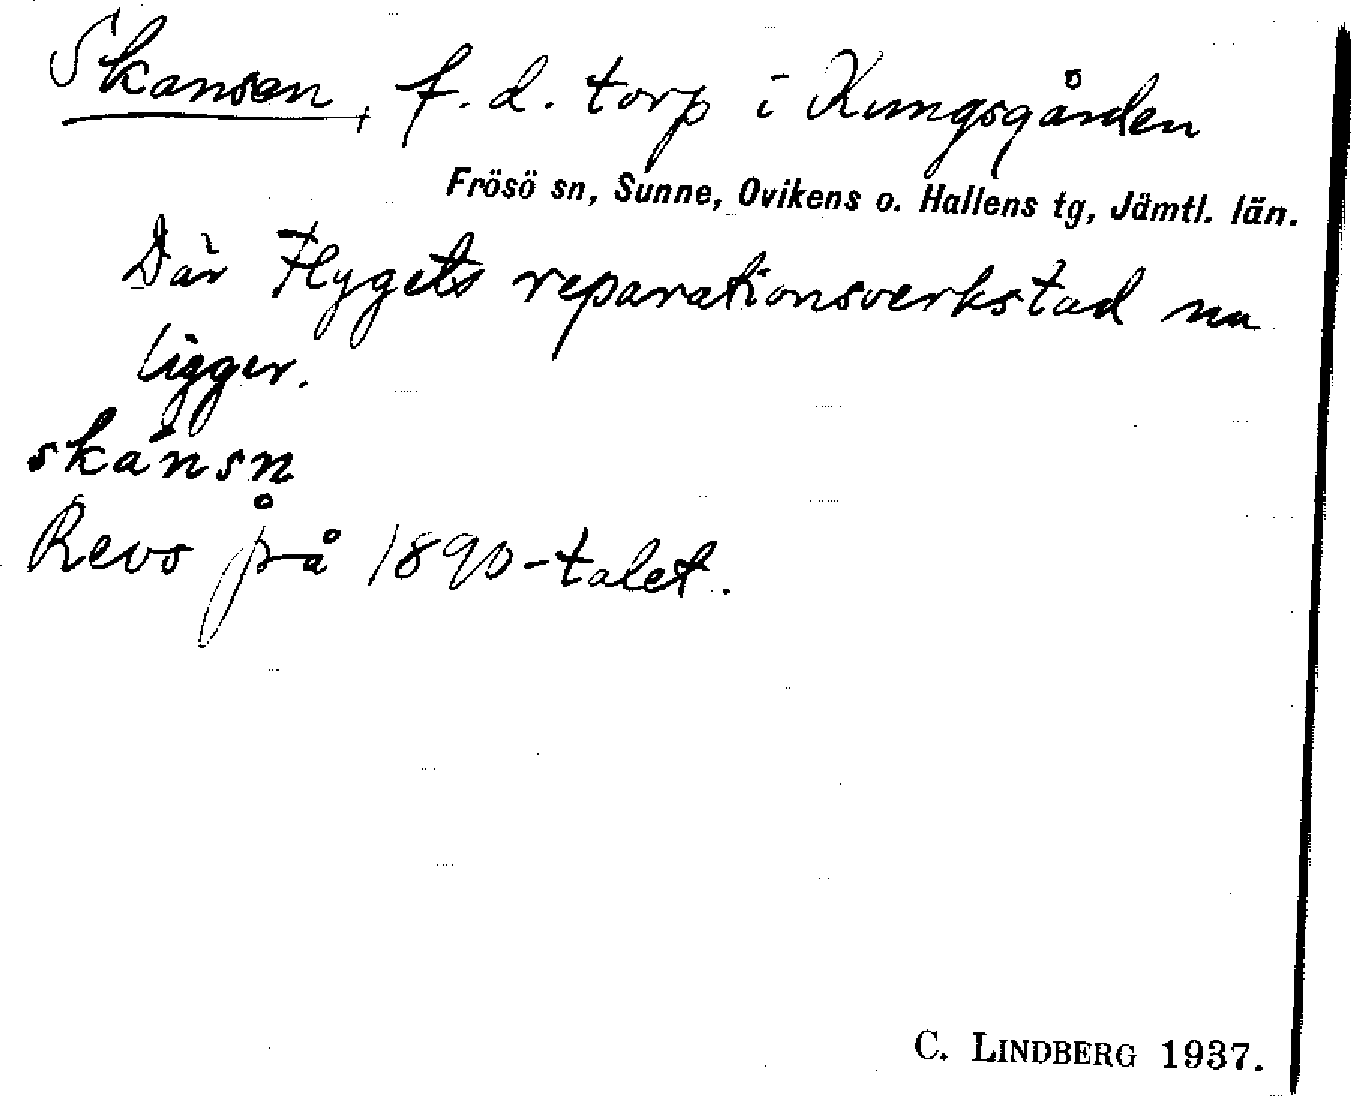 Skansen, f. d. torp i Kungsgården
Frösö sn, Sunne, Ovikens o. Hallens tg, Jämtl. län.
Där Flygets reparationsverkstad nu
ligger.
skánsn̥
Revs på 1890-talet.
C. LINDBERG 1937.